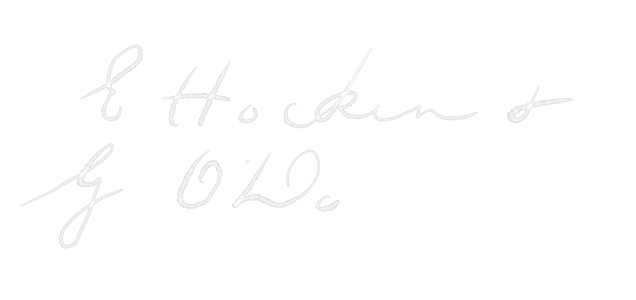 E Hocken &
G O'Do